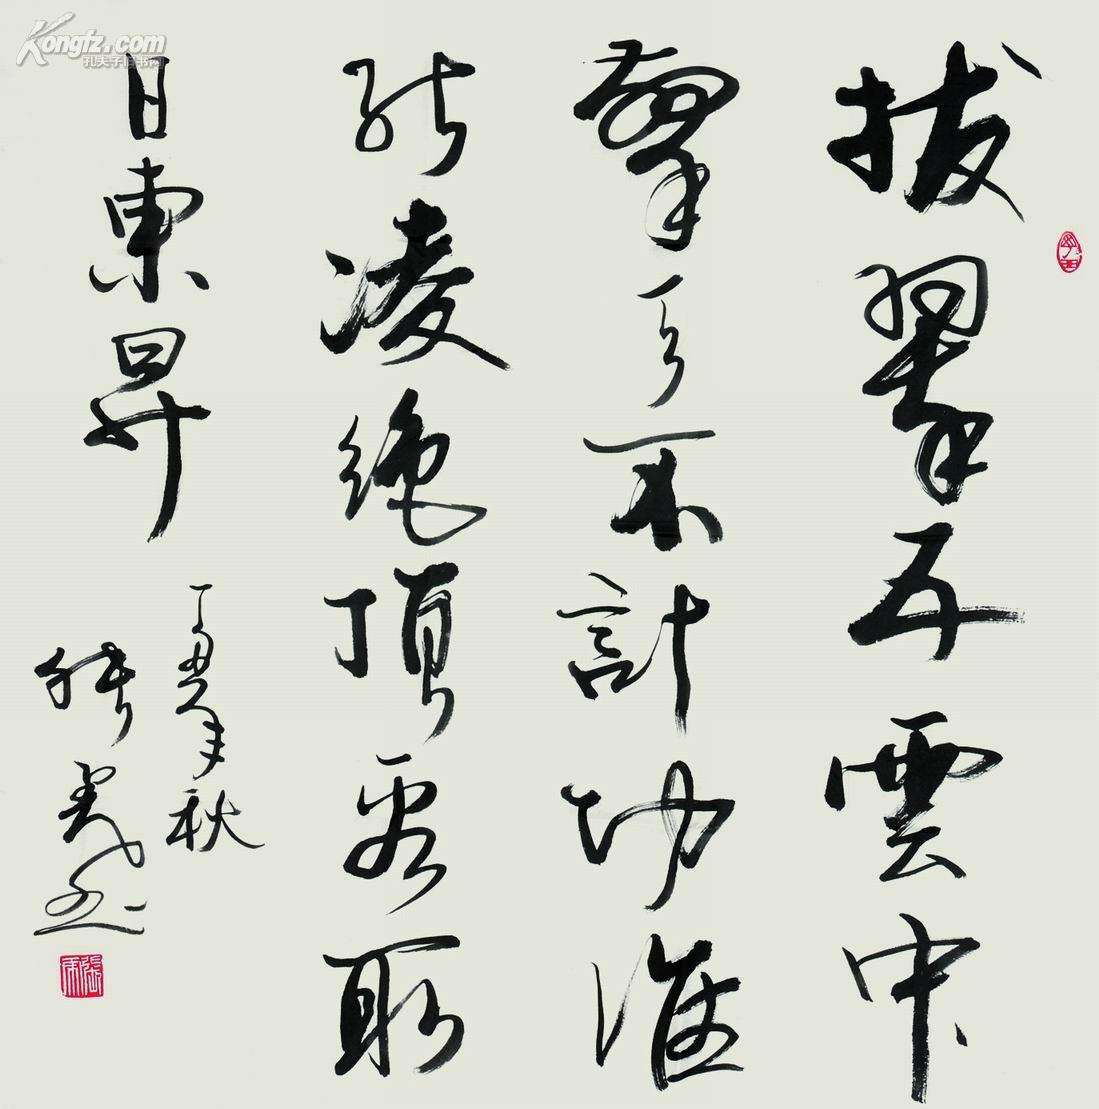 拔翠五雲中
擎天不計功誰
能凌絕頂看取
日東昇
丁丑年秋
張
Kongfz.com
孔夫子旧书网